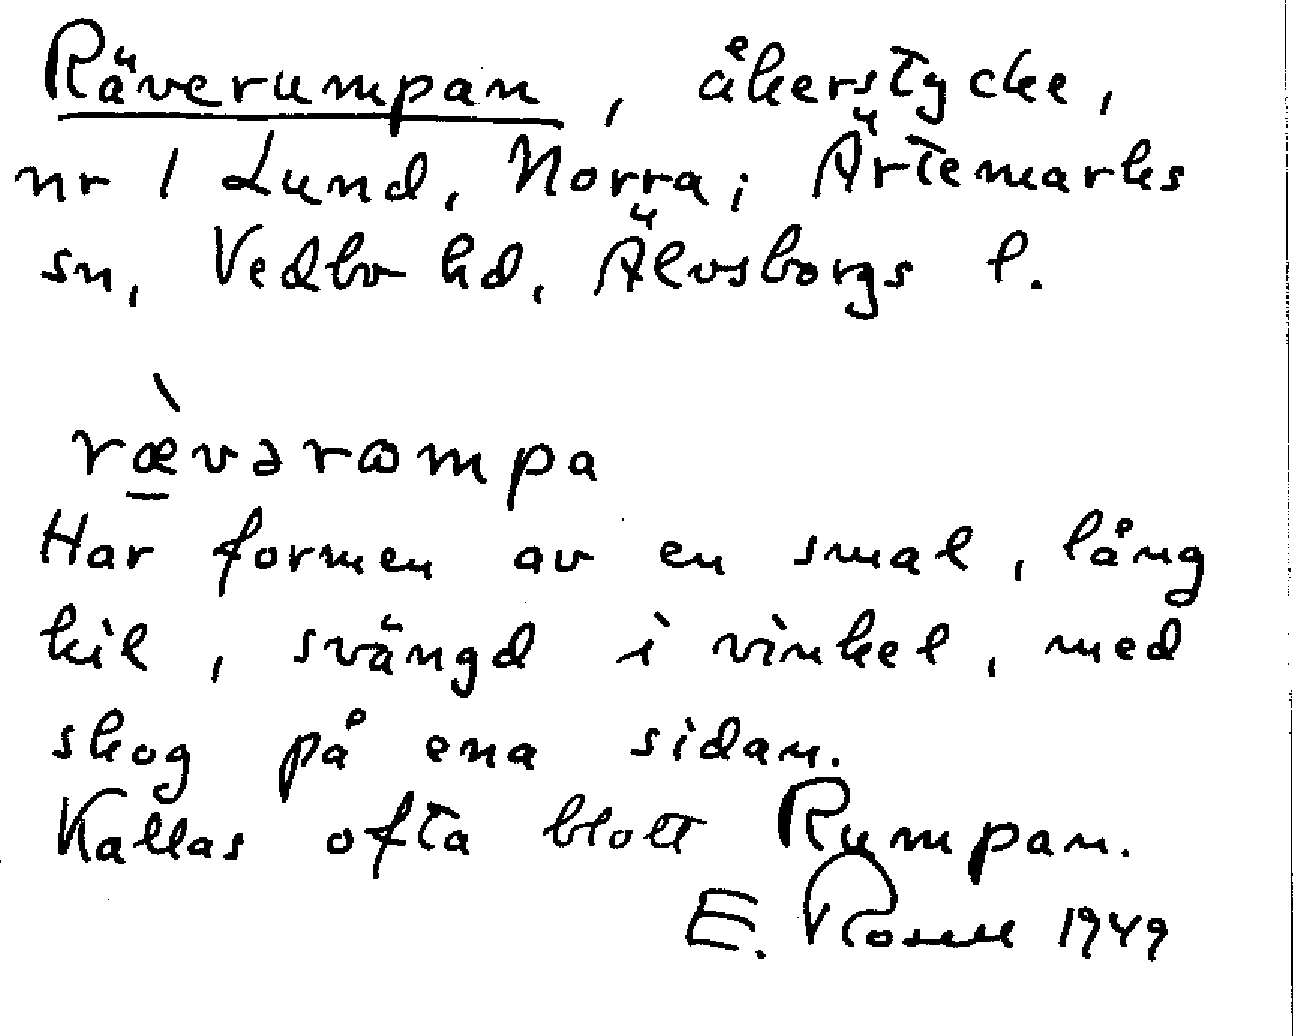 Räverumpan, åkerstycke,
nr 1 Lund, Norra; Ärtemarks
sn, Vedbo hd, Älvsborgs l.
rævərɷmpa
Har formen av en smal, lång
kil, svängd i vinkel, med
skog på ena sidan.
Kallas ofta blott Rumpan.
E. Rosell 1949